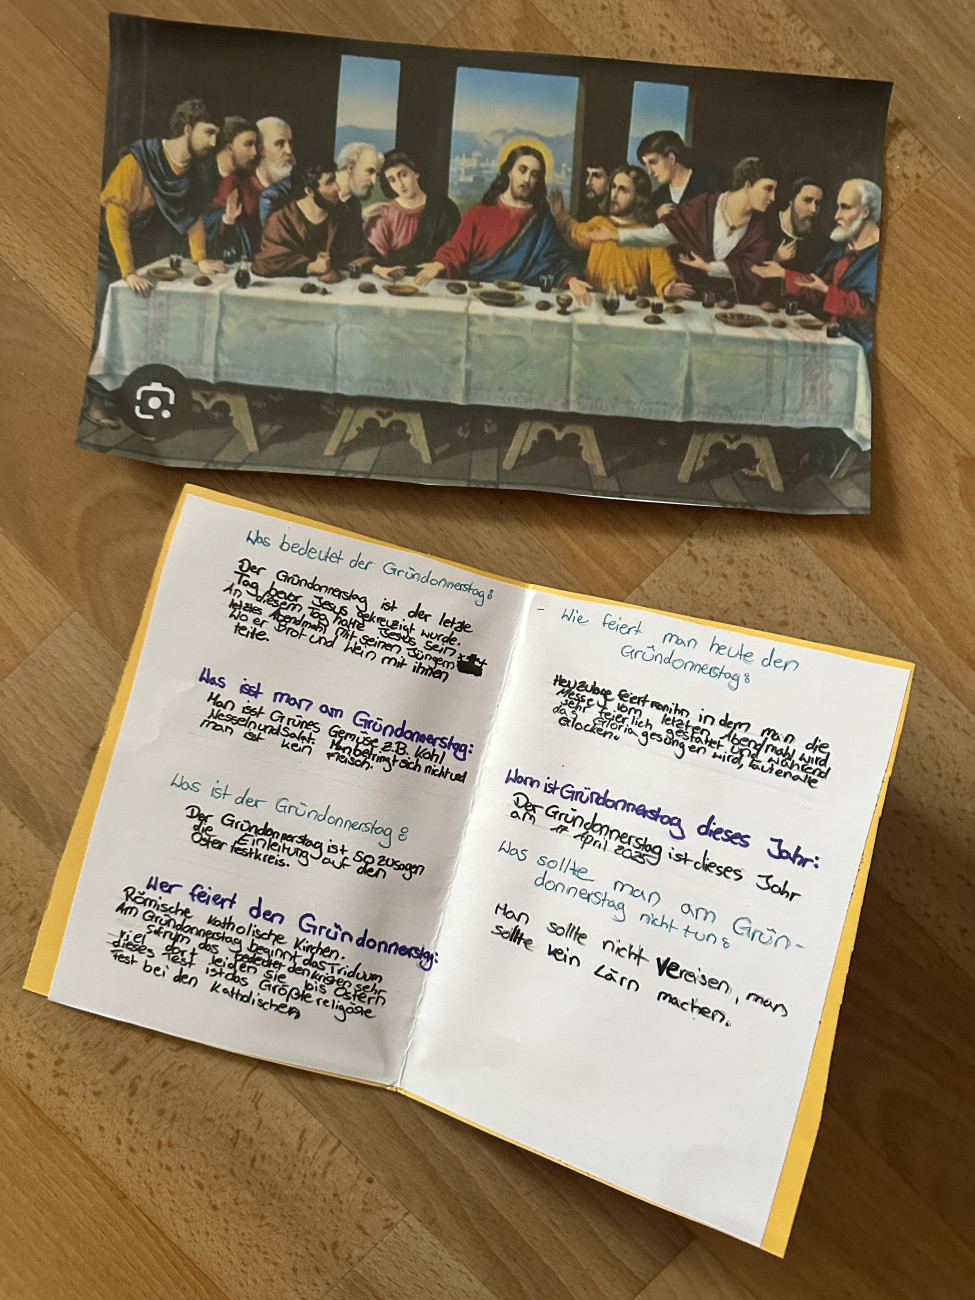 Was bedeutet der Gründonnerstag:
Der Gründonnerstag ist der letzte
Tag bevor Jesus gekreuzigt wurde.
An diesem Tag hatte Jesus sein
letztes Abendmahl mit seinen Jüngern
wo er Brot und Wein mit ihnen
teilte.
Was isst man am Gründonnerstag:
Man isst Grünes Gemüse z.B. Kohl
Nesseln und Salat. Man betringt sich nicht und
man ist kein Fleisch.
Was ist der Gründonnerstag:
Der Gründonnerstag ist so zusagen
die Einleitung auf den
Osterfestkreis.
Wer feiert den Gründonnerstag:
Römische Katholische Kirchen.
Am Gründonnerstag beginnt das Triduum
das bedeutet den kristen sehr
viel dort leiden sie bis Ostern
dieses Fest ist das Größte religöste
fest bei den Katholischen
- Wie feiert man heute den
Gründonnerstag:
Heuzutage feiert man ihn in dem man die
Messe vom letzten Abendmahl wird
sehr feierlich gestaltet und während
das Gloria gesungen wird, läuten alle
Glocken.
Wann ist Gründonnerstag dieses Jahr:
Der Gründonnerstag ist dieses Jahr
am 17 April 2025
Was sollte man am Grün-
donnerstag nicht tun:
Man sollte nicht vereisen, man
sollte kein Lärn machen.